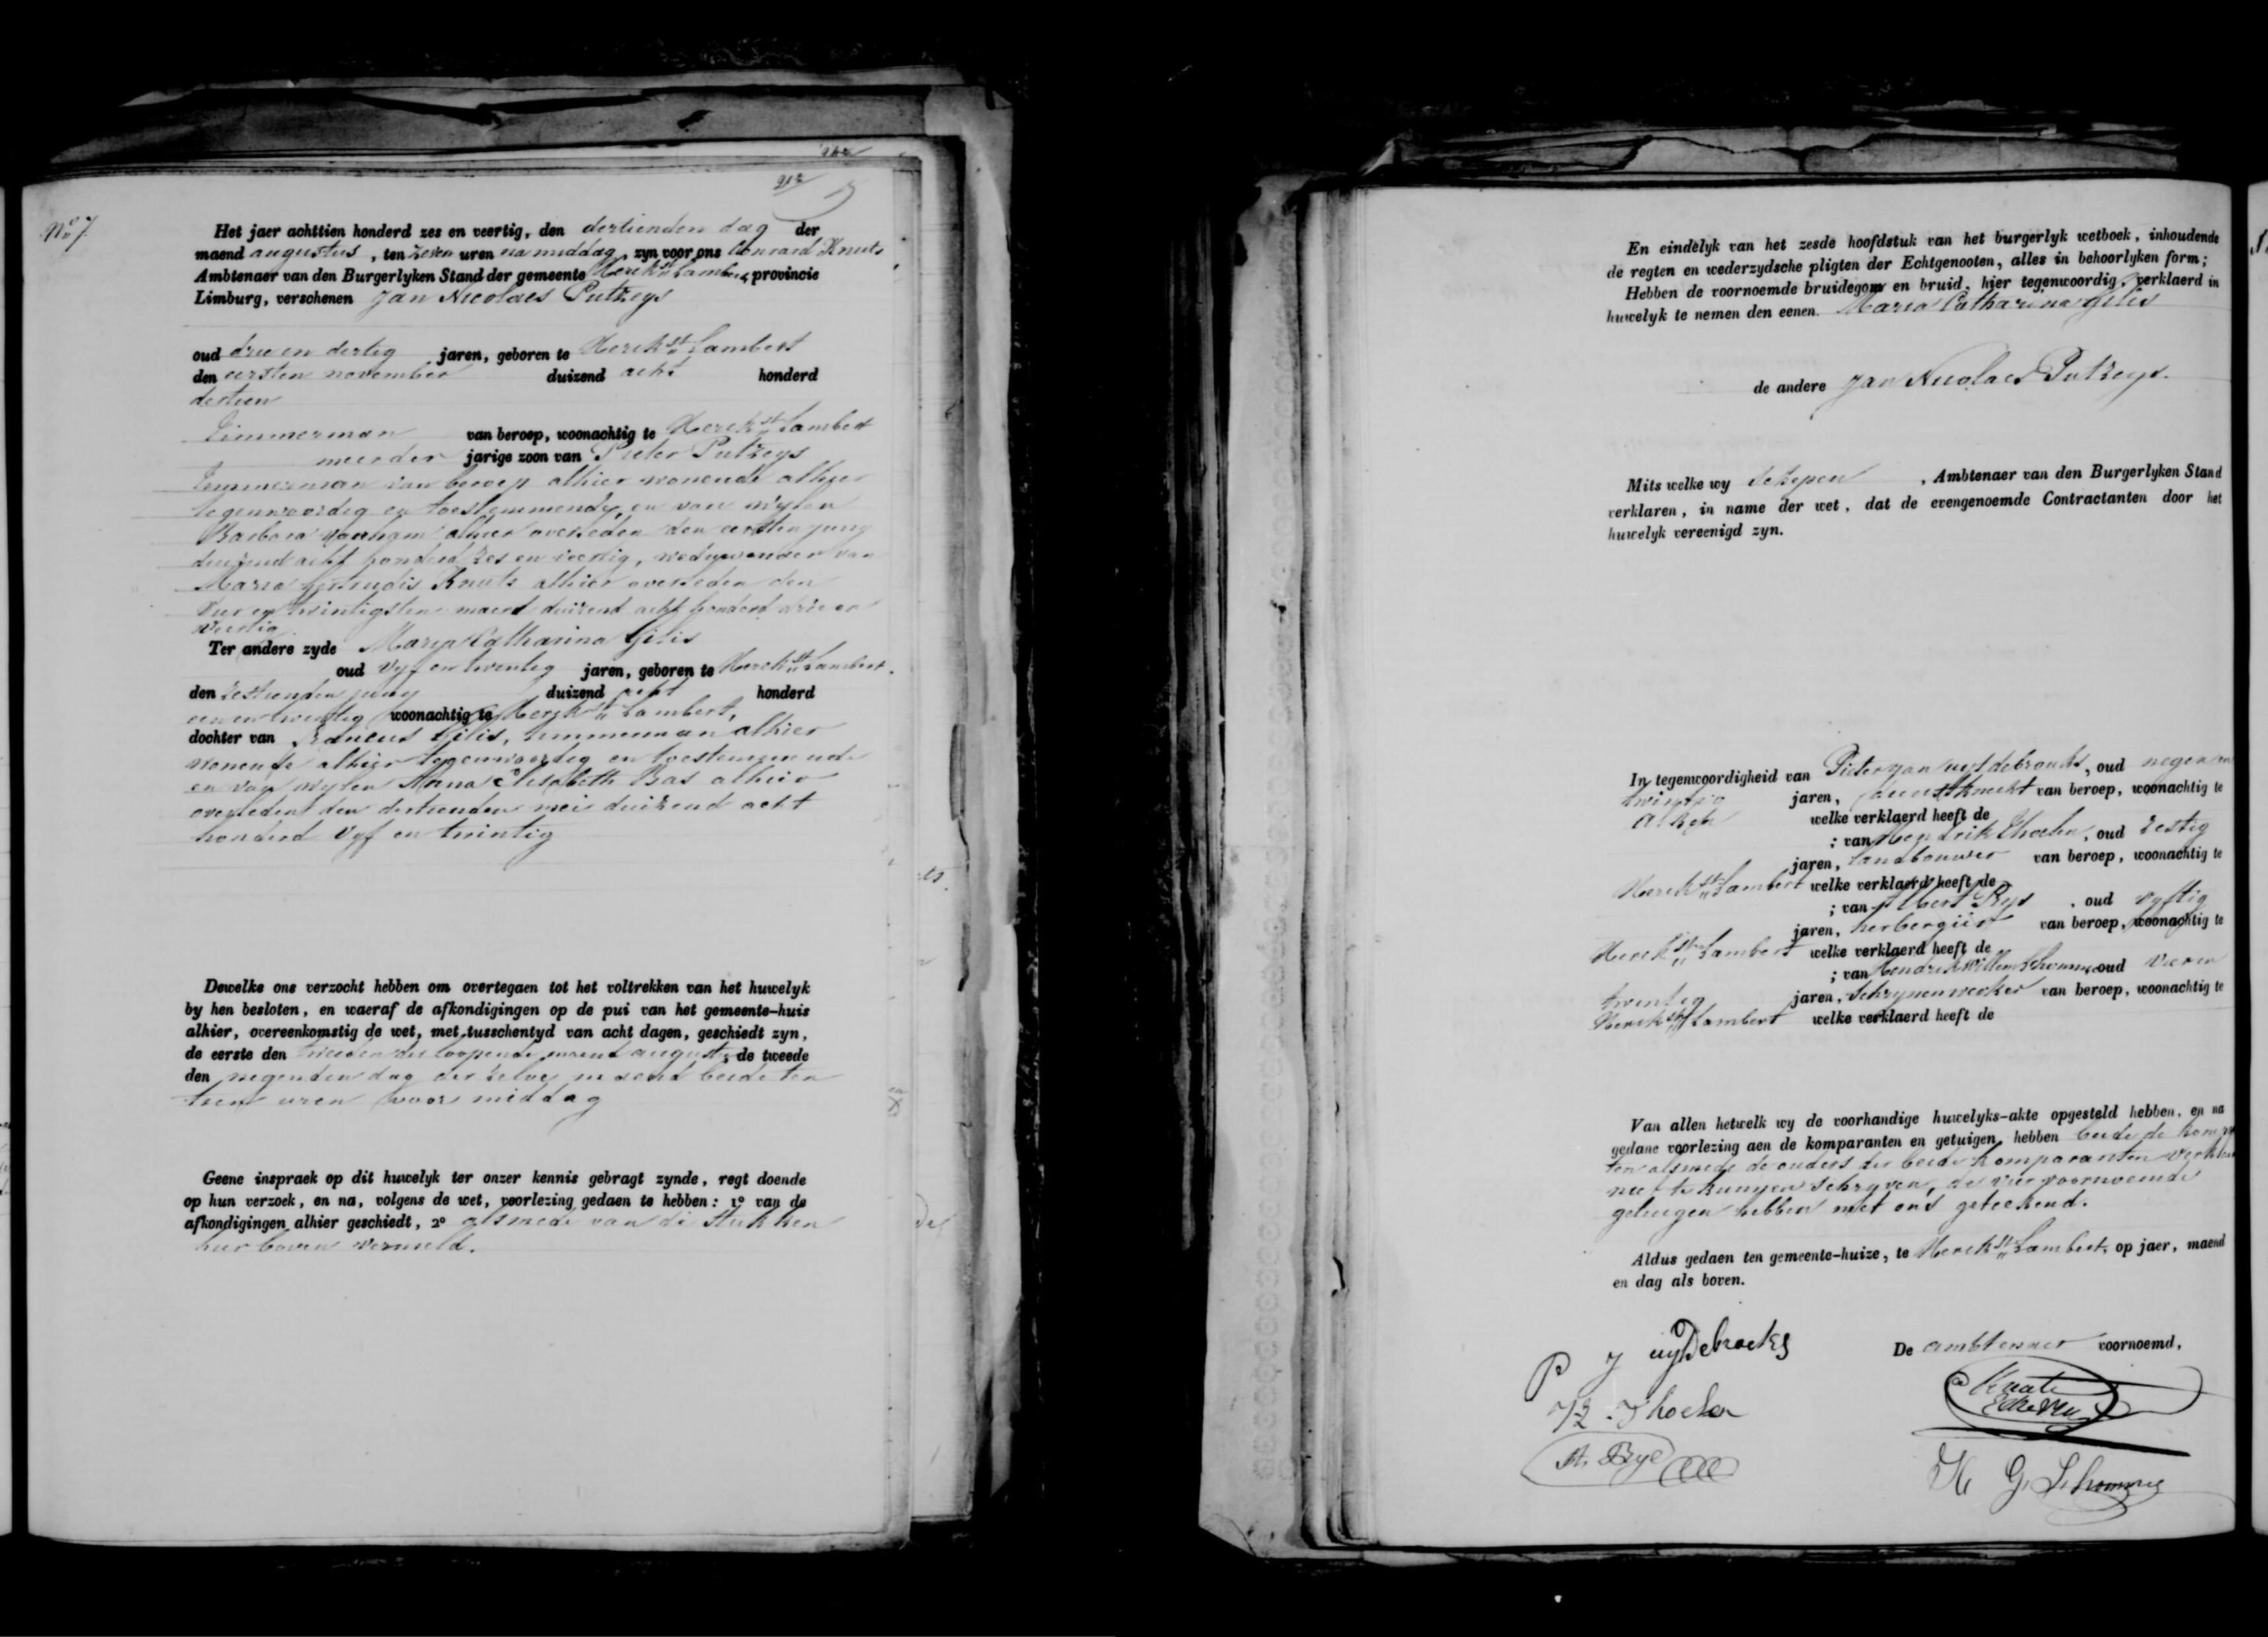 No 7.
Het jaer achttien honderd zes en veertig, den dertienden dag der
maend augustus, ten zeven uren namiddag, zyn voor ons Conrard Knuts
Ambtenaer van den Burgerlyken Stand der gemeente Herck St Lambert, provincie
Limburg, verschenen Jan Nicolaes Putzeys
oud drie en dertig jaren, geboren te Herck St Lambert
den eersten november duizend acht honderd
dertien
Timmerman van beroep, woonachtig te Herck St Lambert
meerder jarige zoon van Pieter Putzeys
Timmerman van beroep alhier wonende alhier
tegenwoordig en toestemmende, en van wylen
Barbara Vanham alhier overleden den eersten juny
duizend acht honderd zes en veertig, weduwenaer van
Maria Gertrudis Knuts alhier overleden den
vier en twintigsten maert duizend acht honderd drie en
veertig
Ter andere zyde Maria Catharina Gilis
oud vyf en twintig jaren, geboren te Herck St Lambert.
den zestienden juny duizend acht honderd
een en twintig woonachtig te Herck St Lambert,
dochter van Gilis, timmerman alhier
wonende alhier tegenwoordig en toestemmende
en van wylen Anna Elisabeth Bas alhier
overleden den dertienden mei duizend acht
honderd vyf en twintig
Dewelke ons verzocht hebben om overtegaen tot het voltrekken van het huwelyk
by hen besloten, en waeraf de afkondigingen op de pui van het gemeente-huis
alhier, overeenkomstig de wet, met tusschentyd van acht dagen, geschiedt zyn,
de eerste den tweeden der loopende maend august, de tweede
den negenden dag der zelve maend beide ten
tien uren voor middag
Geene inspraek op dit huwelyk ter onzer kennis gebragt zynde, regt doende
op hun verzoek, en na, volgens de wet, voorlezing gedaen te hebben: 1o van de
afkondigingen alhier geschiedt, 2o alsmede van de stukken
hier boven vermeld.
En eindelyk van het zesde hoofdstuk van het burgerlyk wetboek, inhoudende
de regten en wederzydsche pligten der Echtgenooten, alles in behoorlyken form;
Hebben de voornoemde bruidegom en bruid, hier tegenwoordig, verklaerd in
huwelyk te nemen den eenen. Maria Catharina Gilis
de andere Jan Nicolaes Putzeys.
Mits welke wy Schepen, Ambtenaer van den Burgerlyken Stand
verklaren, in name der wet, dat de evengenoemde Contractanten door het
huwelyk vereenigd zyn.
In tegenwoordigheid van Pieter Jan uytdebroucks, oud negen en
twintig jaren, dienstknecht van beroep, woonachtig te
Alken welke verklaerd heeft de
; van Hendrik Thoelen, oud zestig
jaren, landbouwer van beroep, woonachtig te
Herck St Lambert welke verklaerd heeft de
; van Albert Bys, oud vyftig
jaren, herbergier van beroep, woonachtig te
Herck St Lambert welke verklaerd heeft de
; van Hendrik Willem Schommes oud vier en
twintig jaren, Schrynenwerker van beroep, woonachtig te
Herck St Lambert welke verklaerd heeft de
Van allen hetwelk wy de voorhandige huwelyks-akte opgesteld hebben, en na
gedane voorlezing aen de komparanten en getuigen, hebben beide de kompar
ten alsmede de ouders der beide komparanten verklaer
niet te kunnen schryven, de vier voornoemde
getuigen hebben met ons geteekend.
Aldus gedaen ten gemeente-huize, te Herck St Lambert, op jaer, maend
en dag als boven.
P J uytDebroeks
De ambtenaer voornoemd,
Knuts
H. Thoelen
A. Bys
H G. Schommes